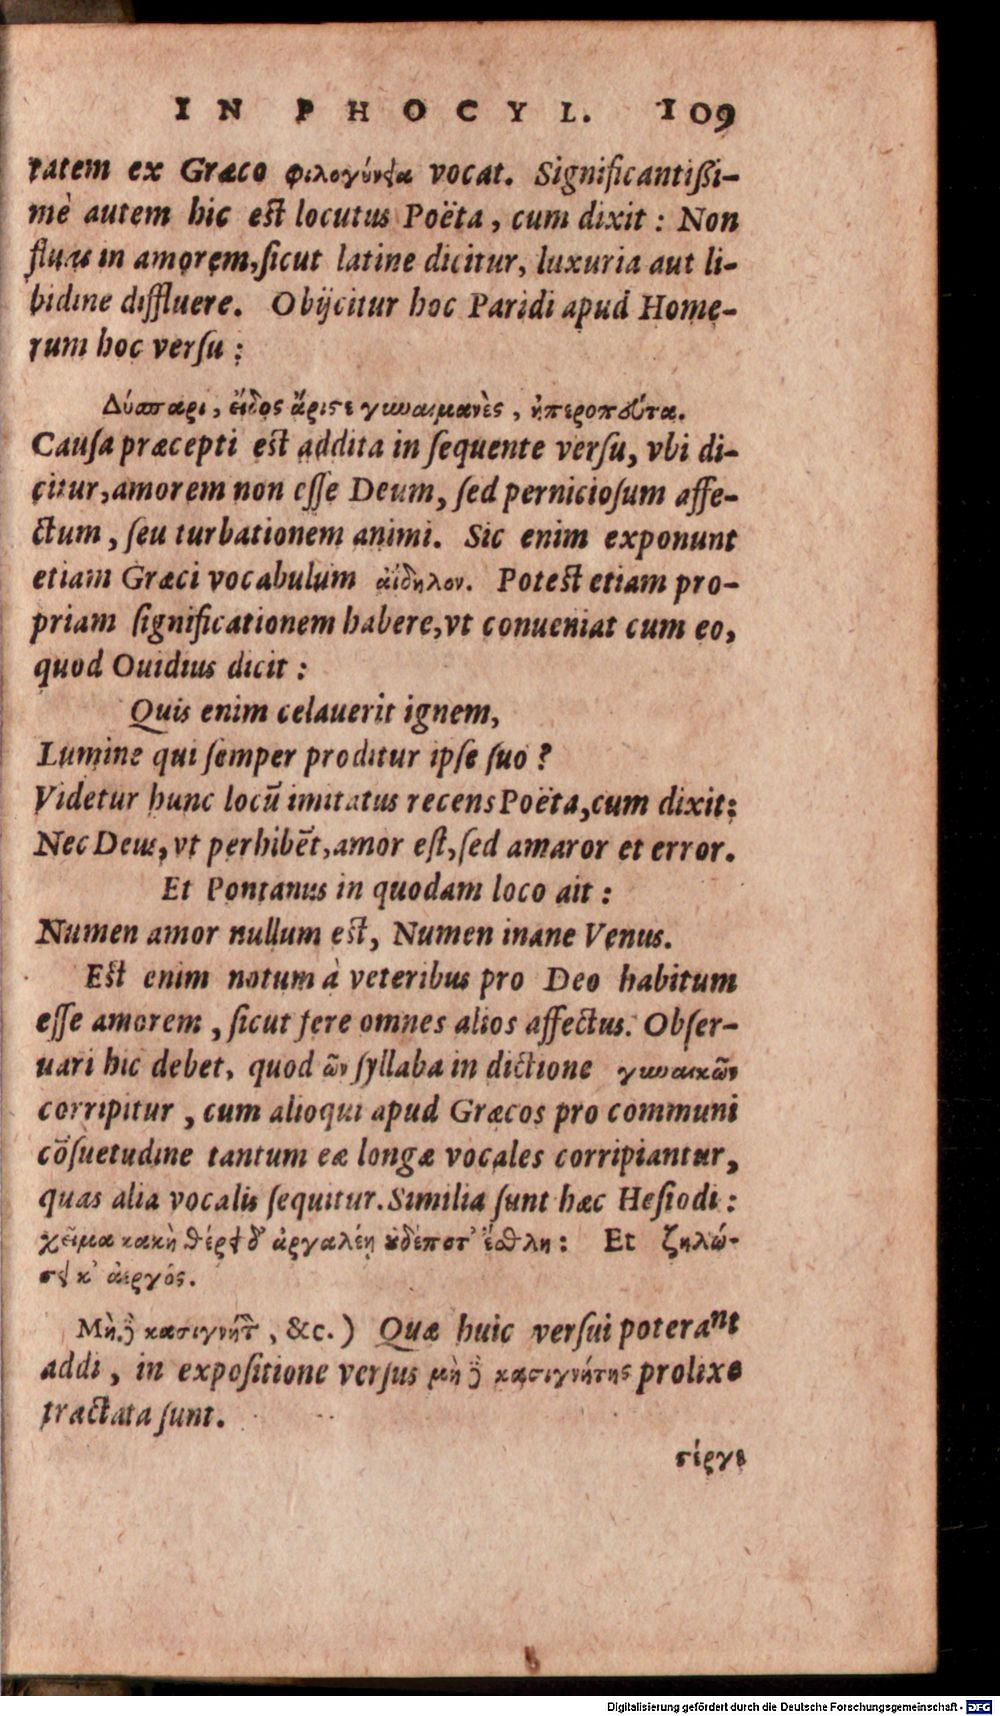 IN PHOCYL. 109
tatem ex Græco φιλογύνεια vocat. Significantißi-
mè autem hic est locutus Poëta, cum dixit: Non
fluas in amorem, ſicut latine dicitur, luxuria aut li-
bidine diffluere. Obijcitur hoc Paridi apud Home-
rum hoc verſu:
Δύσπαρι, εἶδος ἄριστε γυναιμανὲς, ἠπεροπευτα.
Cauſa præcepti est addita in ſequente verſu, vbi di-
citur, amorem non eſſe Deum, ſed pernicioſum affe-
ctum, ſeu turbationem animi. Sic enim exponunt
etiam Græci vocabulum ἀίδηλον. Potest etiam pro-
priam ſignificationem habere, vt conueniat cum eo,
quod Ouidius dicit:
Quis enim celauerit ignem,
Lumine qui ſemper proditur ipſe ſuo?
Videtur hunc locū imitatus recens Poëta, cum dixit:
Nec Deus, vt perhibēt, amor eſt, ſed amaror et error.
Et Pontanus in quodam loco ait:
Numen amor nullum est, Numen inane Venus.
Est enim notum à veteribus pro Deo habitum
eſſe amorem, ſicut fere omnes alios affectus. Obſer-
uari hic debet, quod ῶν ſyllaba in dictione γυναικῶν
corripitur, cum alioqui apud Græcos pro communi
cōſuetudine tantum eæ longæ vocales corripiantur,
quas alia vocalis ſequitur. Similia ſunt hæc Heſiodi:
χεῖμα κακὴ θέρει δ' ἀργαλέη ȣδέποτ' ἐσθλη: Et ζηλώ-
σει κ' ἀεργός.
Μὴ δὲ κασιγνήτ, &c.) Quæ huic verſui poterant
addi, in expoſitione verſus μὴ δὲ κασιγνήτης prolixe
tractata ſunt.
στέργε
Digitalisierung gefördert durch die Deutsche Forschungsgemeinschaft - DFG